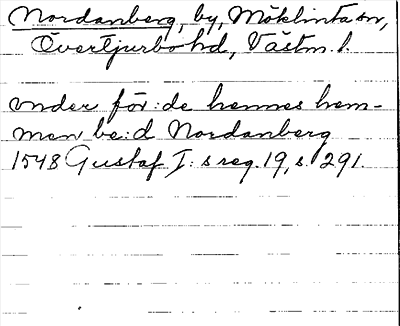 Nordanberg, by, Möklinta sn,
Övertjurbo hd, Västm. l.
vnder för:de hennes hem-
man be:d Nordanberg
1548 Gustaf I: s reg. 19, s. 291.